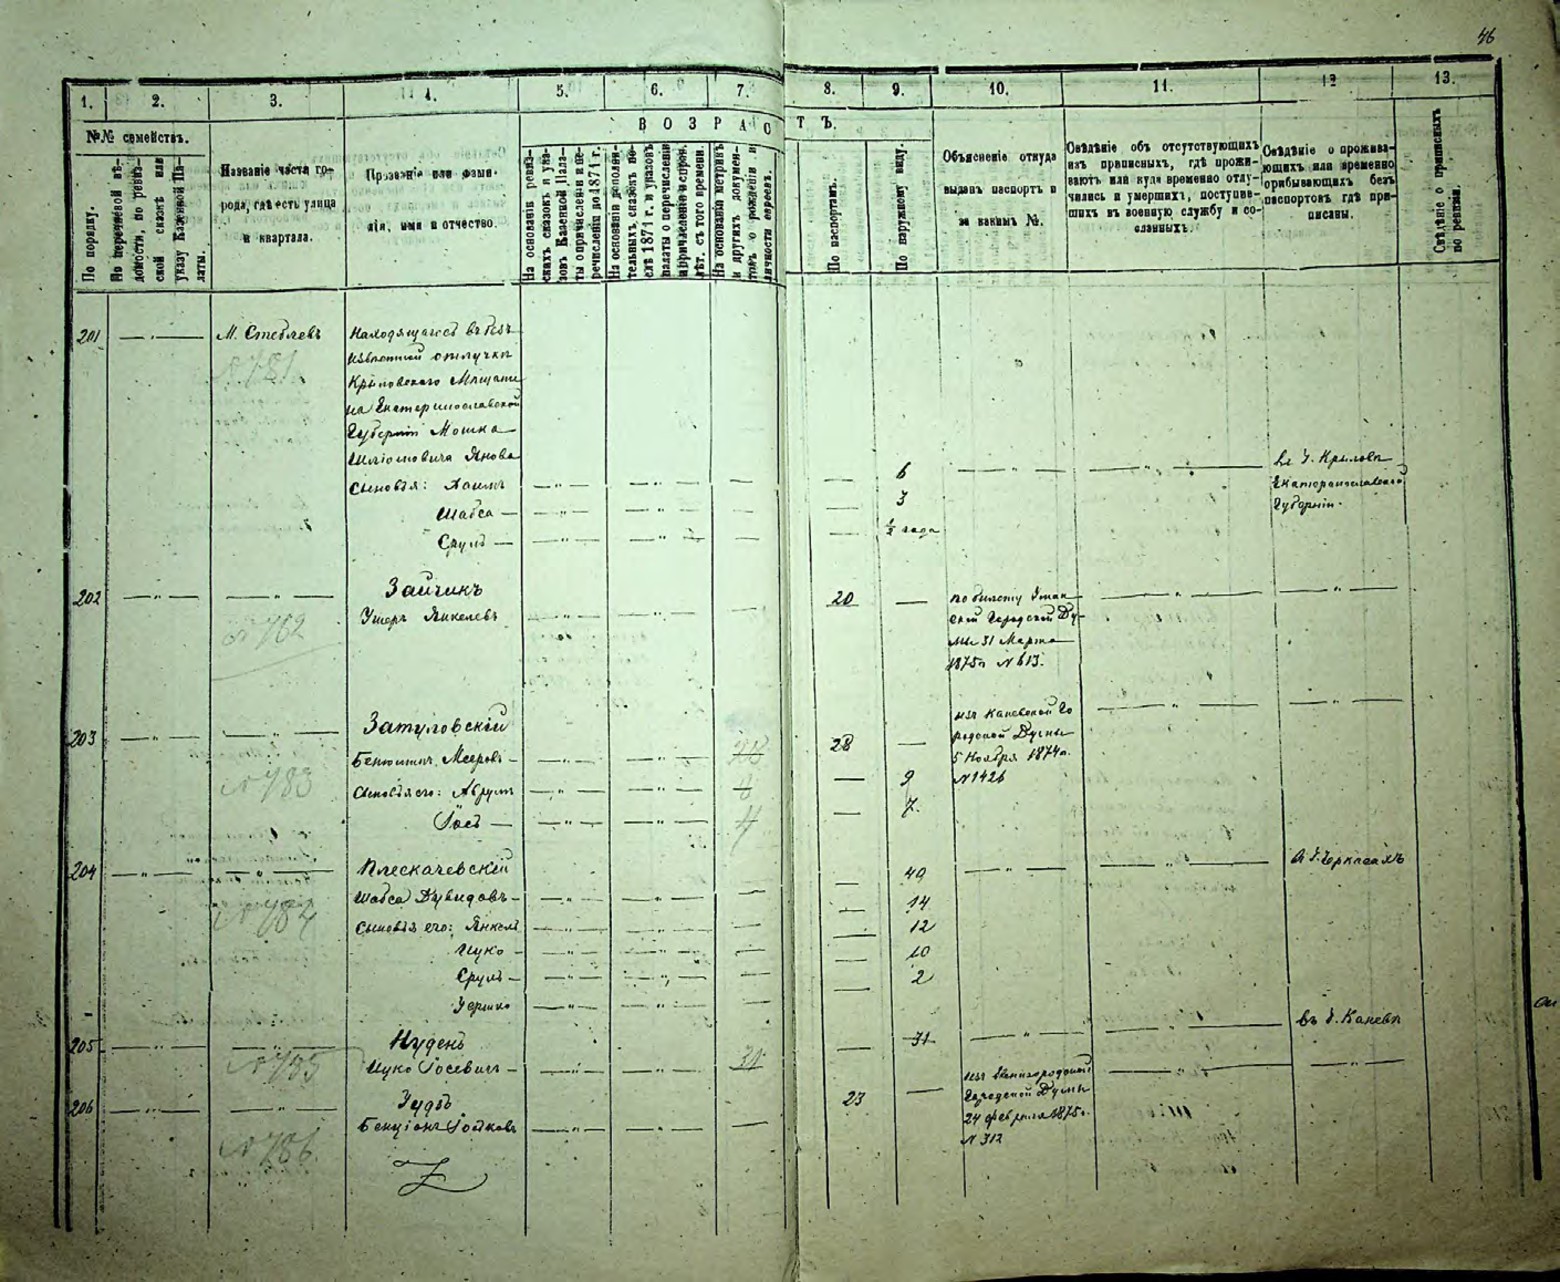 46
1. 2. 3. 4. 5. 6. 7. 8. 9. 10. 11. 12 13.
№№ семействъ.
В О З Р А С Т Ъ.
По порядку.
По перечневой вѣ-
домости, по ревиз-
ской сказкѣ или
указу Казенной Па-
латы.
Названіе части го-
рода, гдѣ есть улица
и квартала.
Прозваніе или фами-
лія, имя и отчество.
На основаніи ревиз-
скихъ сказокъ и ука-
зовъ Казенной Пала-
ты о причисленіи и пе-
речисленіи до 1871 г.
На основаніи дополни-
тельныхъ сказокъ по-
слѣ 1871 г. и указовъ
палаты о перечисленіи
и причисленіи и спрон.
лѣт. съ того времени.
На основаніи метрикъ
и другихъ докумен-
товъ о рожденіи и
личности евреевъ.
По паспортамъ.
По наружному виду.
Объясненіе откуда
выданъ паспортъ и
за какимъ №.
Свѣдѣніе объ отсутствующихъ
изъ приписныхъ, гдѣ прожи-
ваютъ или куда временно отлу-
чились и умершихъ, поступив-
шихъ въ военную службу и со-
сланныхъ.
Свѣдѣніе о прожива-
ющихъ или временно
прибывающихъ безъ
паспортовъ гдѣ при-
писаны.
Свѣдѣніе о приписныхъ
по ревизіи.
201 — " — М. Стеблевъ Находящагося въ без-
извѣстной отлучкѣ
№ 781
Крыловского Мѣщани
на Екатеринославской
Губерніи Мошка
Шліомовича Янова
Сыновья: Хаимъ — " — — " — — — 6 — " — — " — въ Г. Крыловѣ
Шабса — — " — — " — — — 3 Екатеринославской
Губерніи.
Сруль — — " — — " — — — ½ года
202 — " — — " — Зайчикъ
Ушеръ Янкелевъ — " — — " — 20 — по билету Уман
ской Городской Ду-
мы 31 Марта
1875 г. № 613. — " — — " —
№ 782
203 — " — — " — Затуловскій
Бенюминъ Мееровъ — — " — — " — 28 28 — изъ Каневской Го
родской Думы
5 Ноября 1874 г.
№ 1426 — " — — " —
№ 783
Сыновья его: Аврумъ — " — — " — 8 — 9
Іось — — " — — " — 4 — 7.
204 — " — — " — Плескачевскій
Шабса Дувидовъ — — " — — " — — — 49 — " — — " — въ Г. Черкасахъ
№ 784
Сыновья его: Янкель — " — — " — — — 14
Ицко — — " — — " — — — 12
Сруль — — " — — " — — — 10
Гершко — " — — " — — — 2
205 — " — — " — Нудень
Ицко Іосевичъ — — " — — " — 31 — 31 — " — — " — въ Г. Каневѣ
№ 785
206 — " — — " — Зудь
Бенціонъ — " — — " — — 23 — изъ Звенигородской
Городской Думы
24 февраля 1875 г.
№ 312 — " — — " —
№ 786